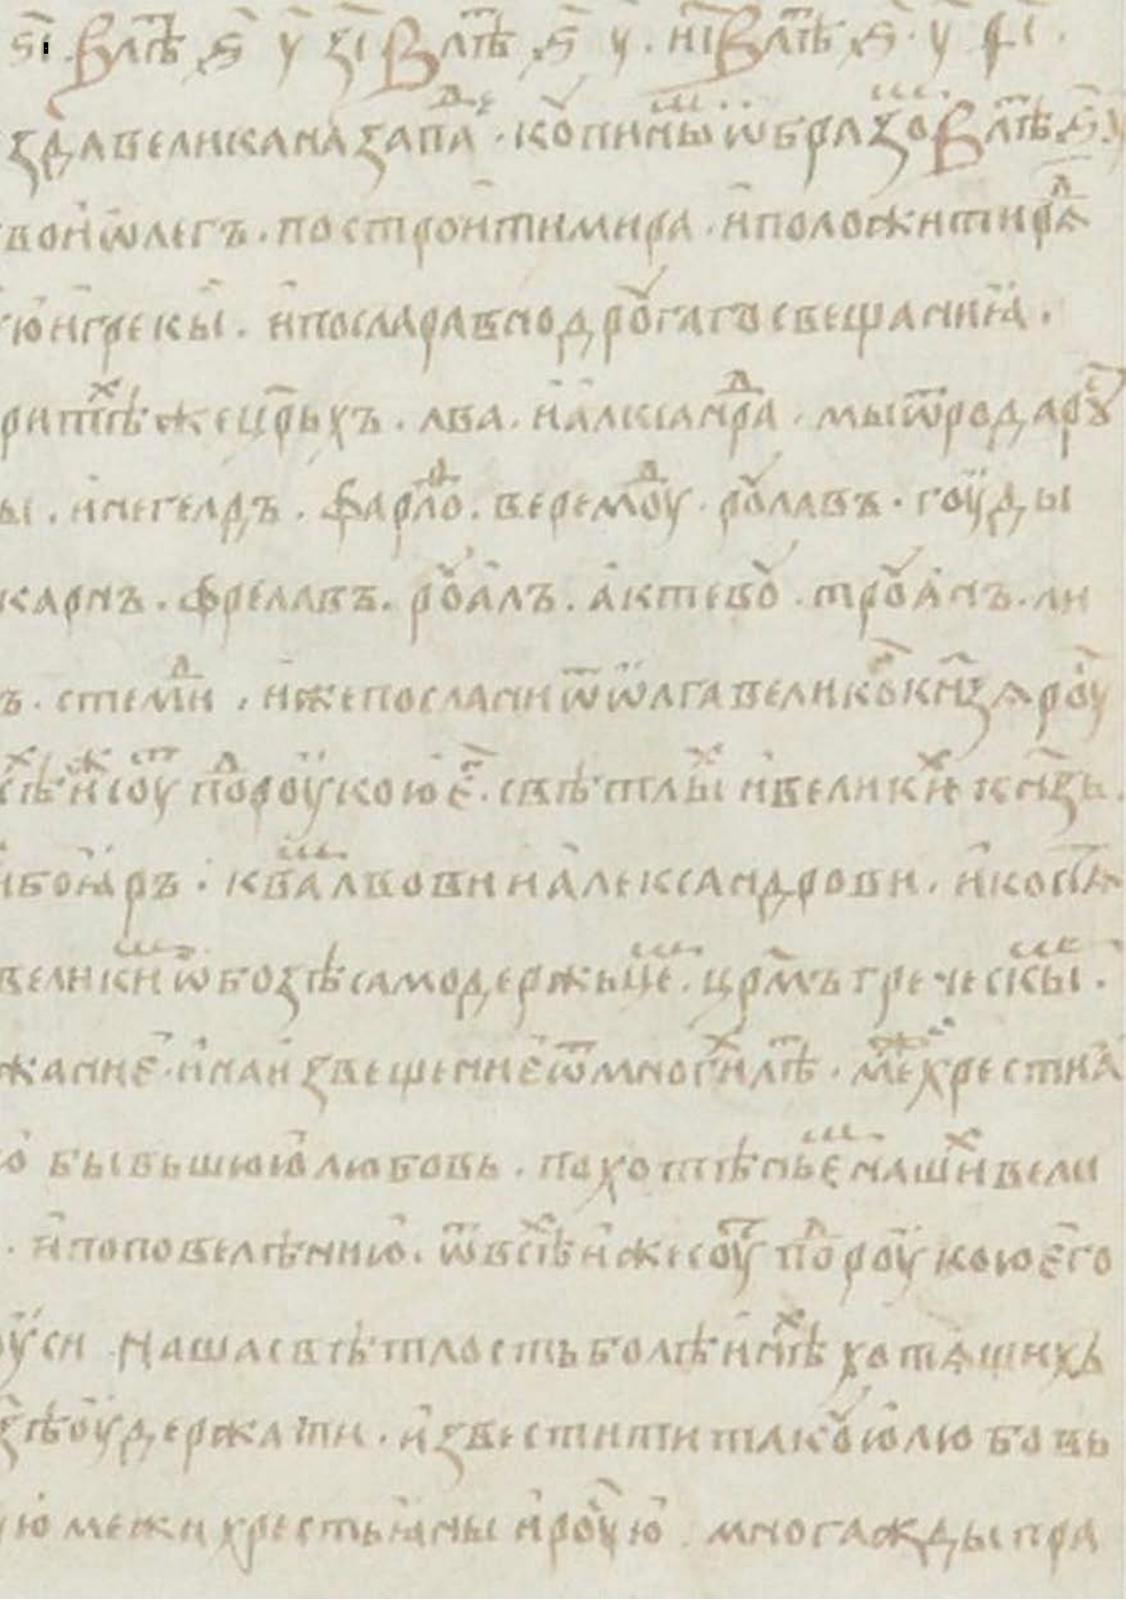 ѕ҃і · В лⷮѣ ҂ѕ҃ у҃ з҃і В лⷮѣ ҂ѕ҃ у҃ · н҃і В лⷮѣ ҂ѕ҃ · у҃ ф҃і ·
зда велика на запаⷣ · копиины ѡбразоⷨ В лⷮѣ ҂ѕ҃ · у
вои ѡлегъ · построити мира · и положити рѧⷣ
ю и грекы · и посла равно дрогаго свещаниꙗ ·
ри тⷯѣ же цр҃ьхъ · лва · и алксанⷣра · мы ѿ рода рꙋⷭ
ы · инегелдъ · фарлоⷴ · веремоуⷣ · рꙋлавъ · гоуды
карнъ · фрелавъ · рꙋалъ · актевꙋ · трꙋанъ · ли
ъ · стемиⷣ · иже послани ѿ ѡлга великоⷢ кн҃зѧ роуⷭ
сⷯѣ иⷤ соуⷮ поⷣ роукою еⷢ · свѣтлыⷯ и великиⷯ кн҃зь ·
и боꙗръ · к ваⷨ львови и александрови · и костѧ
великиⷨ ѡ бозѣ самодержьцеⷨ · цр҃мъ греческыⷨ ·
жание · и на извещение ѿ многиⷯ лⷮѣ · меⷤ хрестиа
ю бывьшюю любовь · похотѣньеⷨ нашиⷯ вели
· и по повелѣнию · ѿ всⷯѣ иже соуⷮ поⷣ роукою его
уси Наша свѣтлость болѣ инⷯѣ хотѧщихъ
зѣ оудержати · известити такꙋю любовь
ую межи хрестьꙗны и роуⷭю · многажды пра